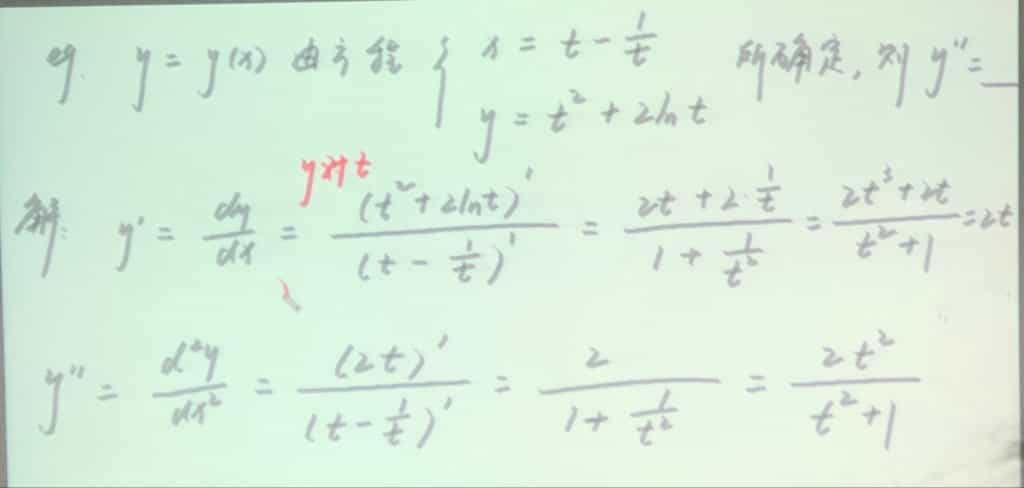 eg. y = y(x) 由方程 { x = t - 1/t 所确定, 则 y'' = __
y = t² + 2lnt
y对t
解: y' = dy/dx = (t² + 2lnt)' / (t - 1/t)' = (2t + 2·1/t) / (1 + 1/t²) = (2t³ + 2t) / (t² + 1) = 2t
y'' = d²y/dx² = (2t)' / (t - 1/t)' = 2 / (1 + 1/t²) = 2t² / (t² + 1)